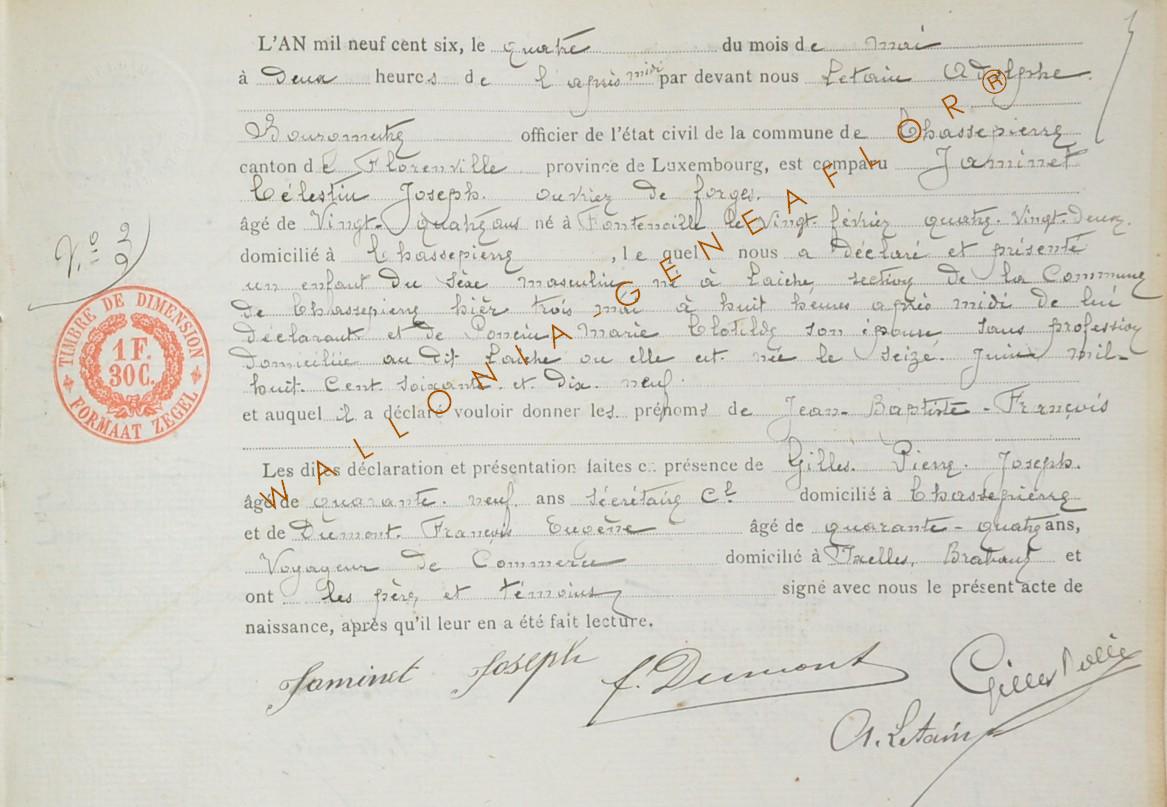 L'AN mil neuf cent six, le quatre du mois de mai
à Deux heures de l'après midi par devant nous Letain Adolphe
Bourgmestre officier de l'état civil de la commune de Chassepierre
canton de Florenville province de Luxembourg, est comparu Jaminet
Célestin Joseph. ouvrier de forges.
âgé de Vingt-quatre ans né à Fontenoille le Vingt février quatre-Vingt-Deux.
domicilié à Chassepierre, lequel nous a déclaré et présenté
un enfant du sexe masculin, né à Laiche, section de la Commune
de Chassepierre hièr trois mai à huit heures après midi de lui
déclarant et de Poncin Marie Clotilde son épouse sans profession
domiciliée au dit Laiche ou elle est née le Seize. Juin mil-
huit. Cent soixante. et. dix. neuf.
et auquel il a déclaré vouloir donner les prénoms de Jean-Baptiste-François
Les dites déclaration et présentation faites en présence de Gilles. Pierre. Joseph.
âgé de quarante. neuf ans Sécrétaire Cl domicilié à Chassepierre
et de Dumont. François Eugène âgé de quarante-quatre ans,
Voyageur de Commerce domicilié à Ixelles, Brabant et
ont les père, et témoins signé avec nous le présent acte de
naissance, après qu'il leur en a été fait lecture.
Jaminet Joseph f. Dumont Gilles
A. Letain
N.º 9
9
TIMBRE DE DIMENSION
1 F.
30 C.
FORMAAT ZEGEL
WALLONIA-GENEAFLOR®